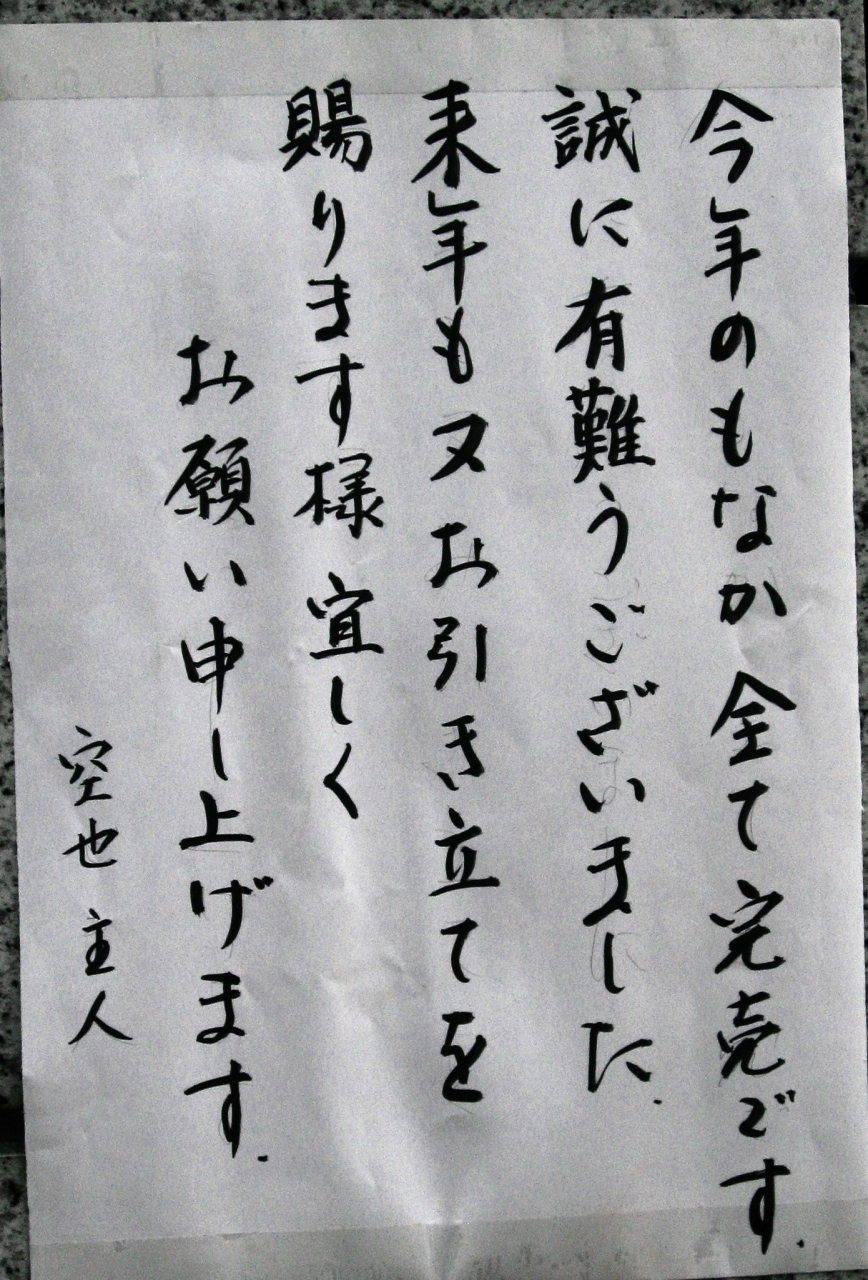 今年のもなか全て完売です.
誠に有難うございました.
来年も又お引き立てを
賜ります様宜しく
お願い申し上げます.
空也主人